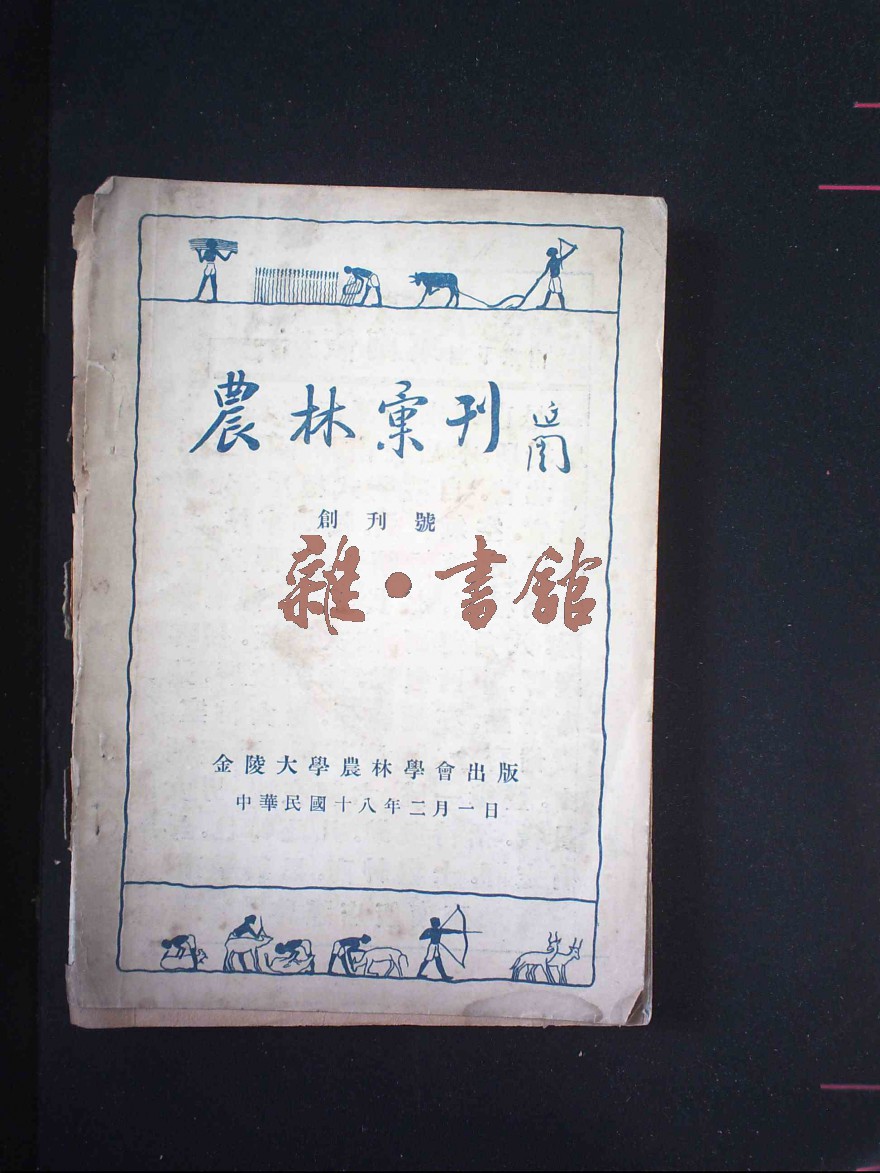 農林彙刊
創刊號
雜·書館
金陵大學農林學會出版
中華民國十八年二月一日